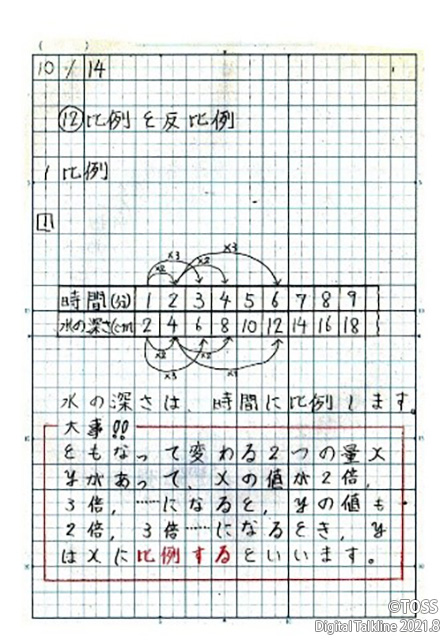 10/14
⑫比例と反比例
1 比例
1
×3 ×3
×2 ×2
時間(分) 1 2 3 4 5 6 7 8 9
水の深さ(cm) 2 4 6 8 10 12 14 16 18
×2 ×2
×3 ×3
水の深さは、時間に比例します。
大事!!
ともなって変わる2つの量x
yがあって、xの値が2倍,
3倍,……になると,yの値も
2倍,3倍……になるとき,y
はxに比例するといいます。
©TOSS
Digital Talkline 2021.8